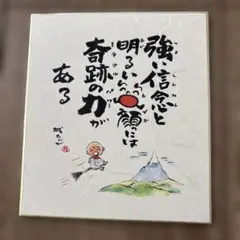 強い信念と
明るい笑顔には
奇跡の力が
ある